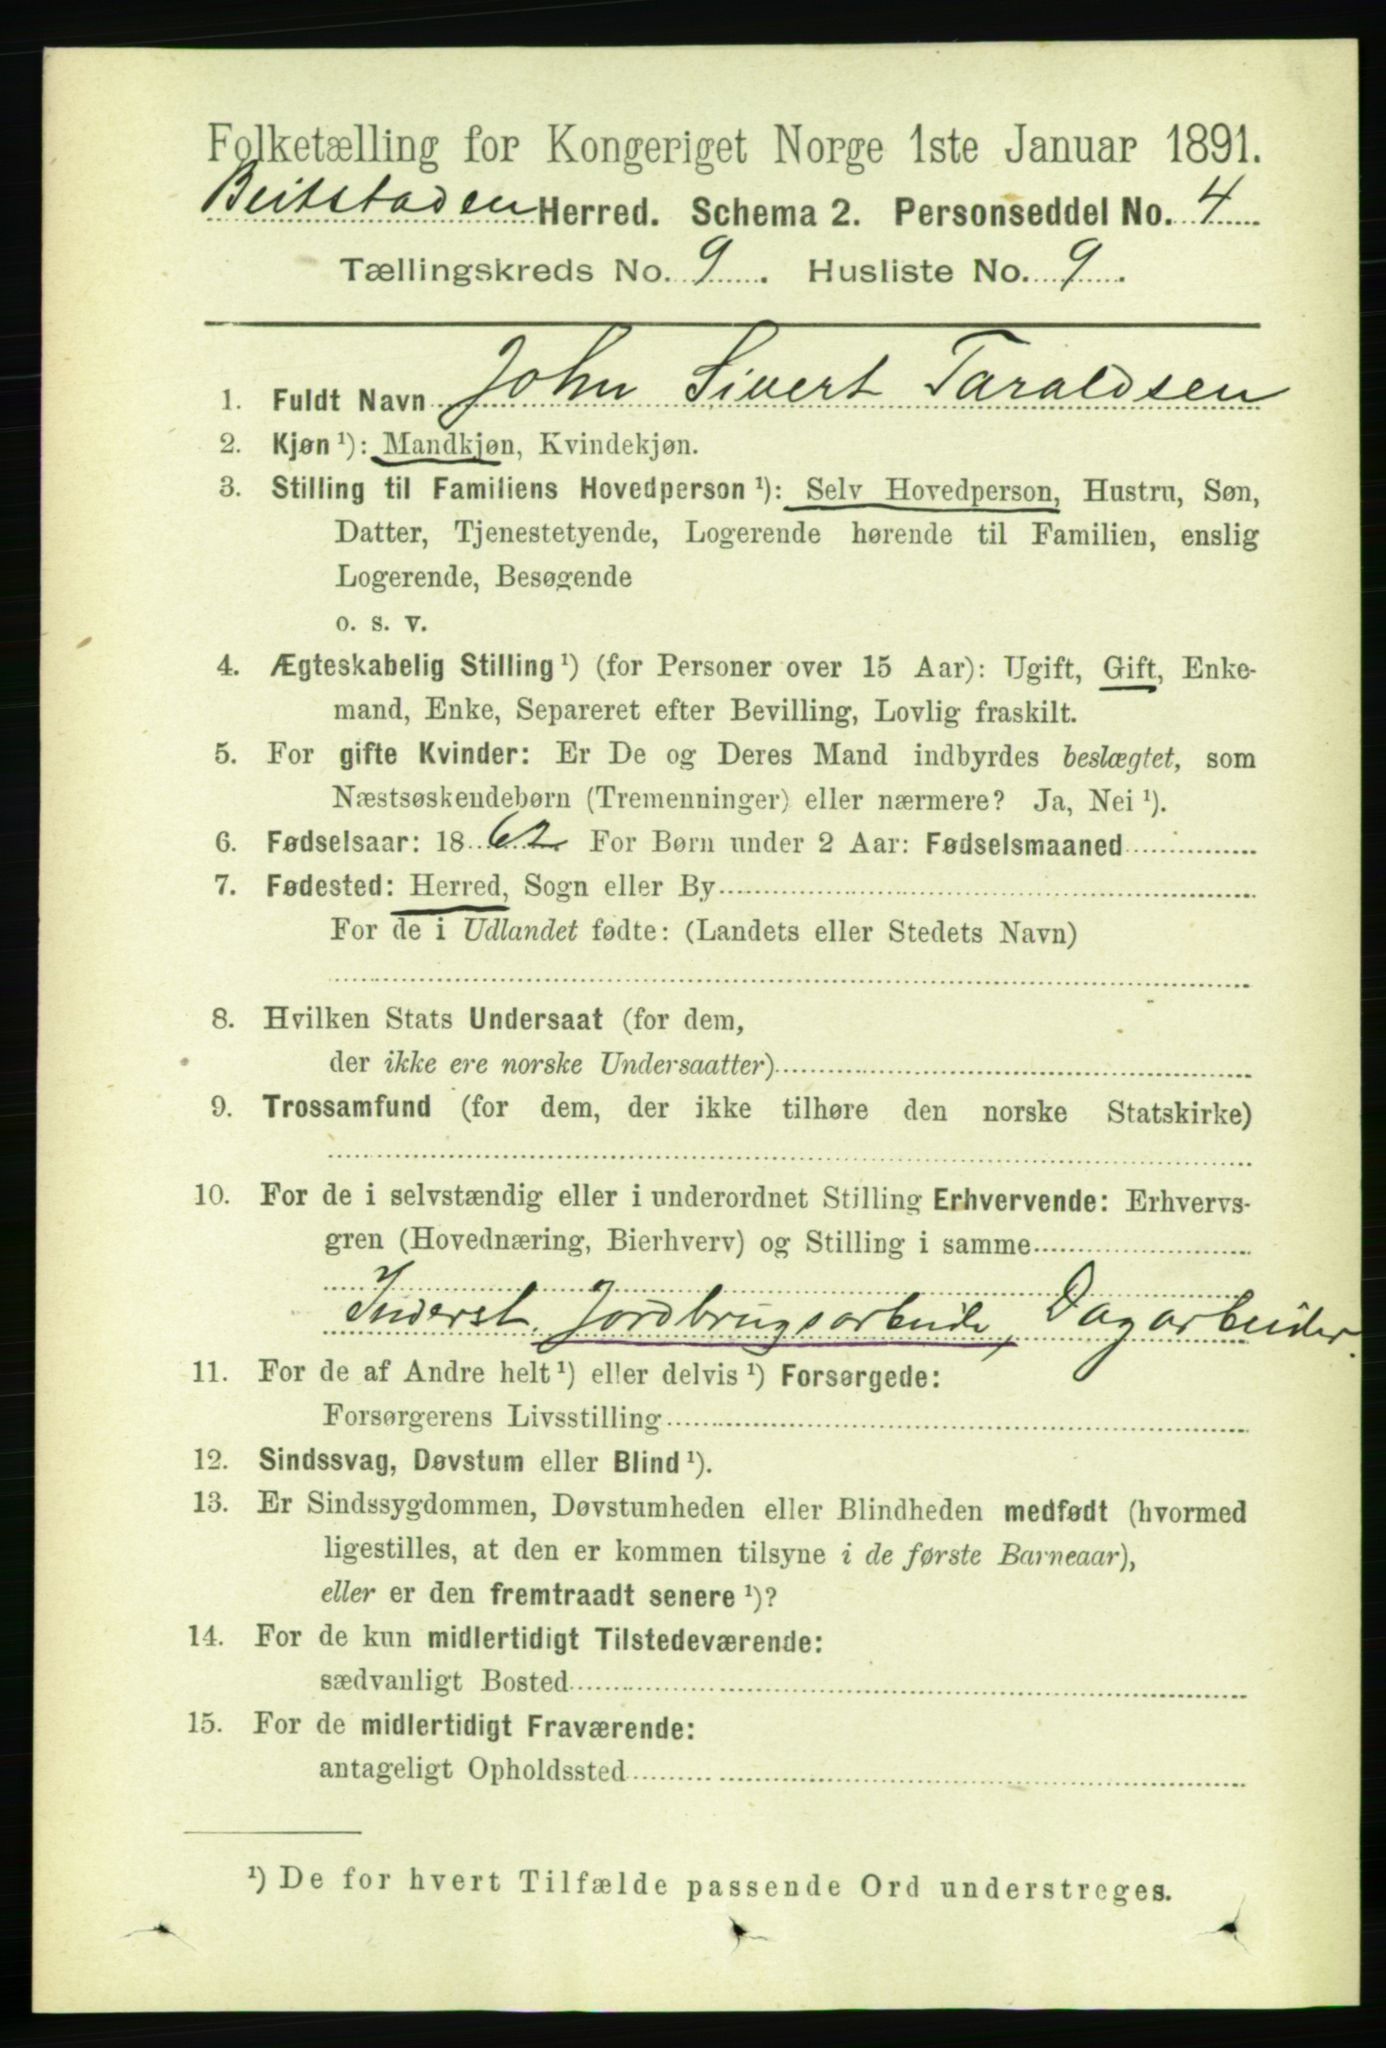 Folketælling for Kongeriget Norge 1ste Januar 1891.
Beitstaden Herred. Schema 2. Personseddel No. 4
Tællingskreds No. 9. Husliste No. 9.
1. Fuldt Navn John Sivert Taraldsen
2. Kjøn ¹): Mandkjøn, Kvindekjøn.
3. Stilling til Familiens Hovedperson ¹): Selv Hovedperson, Hustru, Søn,
Datter, Tjenestetyende, Logerende hørende til Familien, enslig
Logerende, Besøgende
o. s. v.
4. Ægteskabelig Stilling ¹) (for Personer over 15 Aar): Ugift, Gift, Enke-
mand, Enke, Separeret efter Bevilling, Lovlig fraskilt.
5. For gifte Kvinder: Er De og Deres Mand indbyrdes beslægtet, som
Næstsøskendebørn (Tremenninger) eller nærmere? Ja, Nei ¹).
6. Fødselsaar: 1862 For Børn under 2 Aar: Fødselsmaaned
7. Fødested: Herred, Sogn eller By
For de i Udlandet fødte: (Landets eller Stedets Navn)
8. Hvilken Stats Undersaat (for dem,
der ikke ere norske Undersaatter)
9. Trossamfund (for dem, der ikke tilhøre den norske Statskirke)
10. For de i selvstændig eller i underordnet Stilling Erhvervende: Erhvervs-
gren (Hovednæring, Bierhverv) og Stilling i samme
Inderst. Jordbrugsarbeide, Dagarbeider.
11. For de af Andre helt ¹) eller delvis ¹) Forsørgede:
Forsørgerens Livsstilling
12. Sindssvag, Døvstum eller Blind ¹).
13. Er Sindssygdommen, Døvstumheden eller Blindheden medfødt (hvormed
ligestilles, at den er kommen tilsyne i de første Barneaar),
eller er den fremtraadt senere ¹)?
14. For de kun midlertidigt Tilstedeværende:
sædvanligt Bosted
15. For de midlertidigt Fraværende:
antageligt Opholdssted
¹) De for hvert Tilfælde passende Ord understreges.